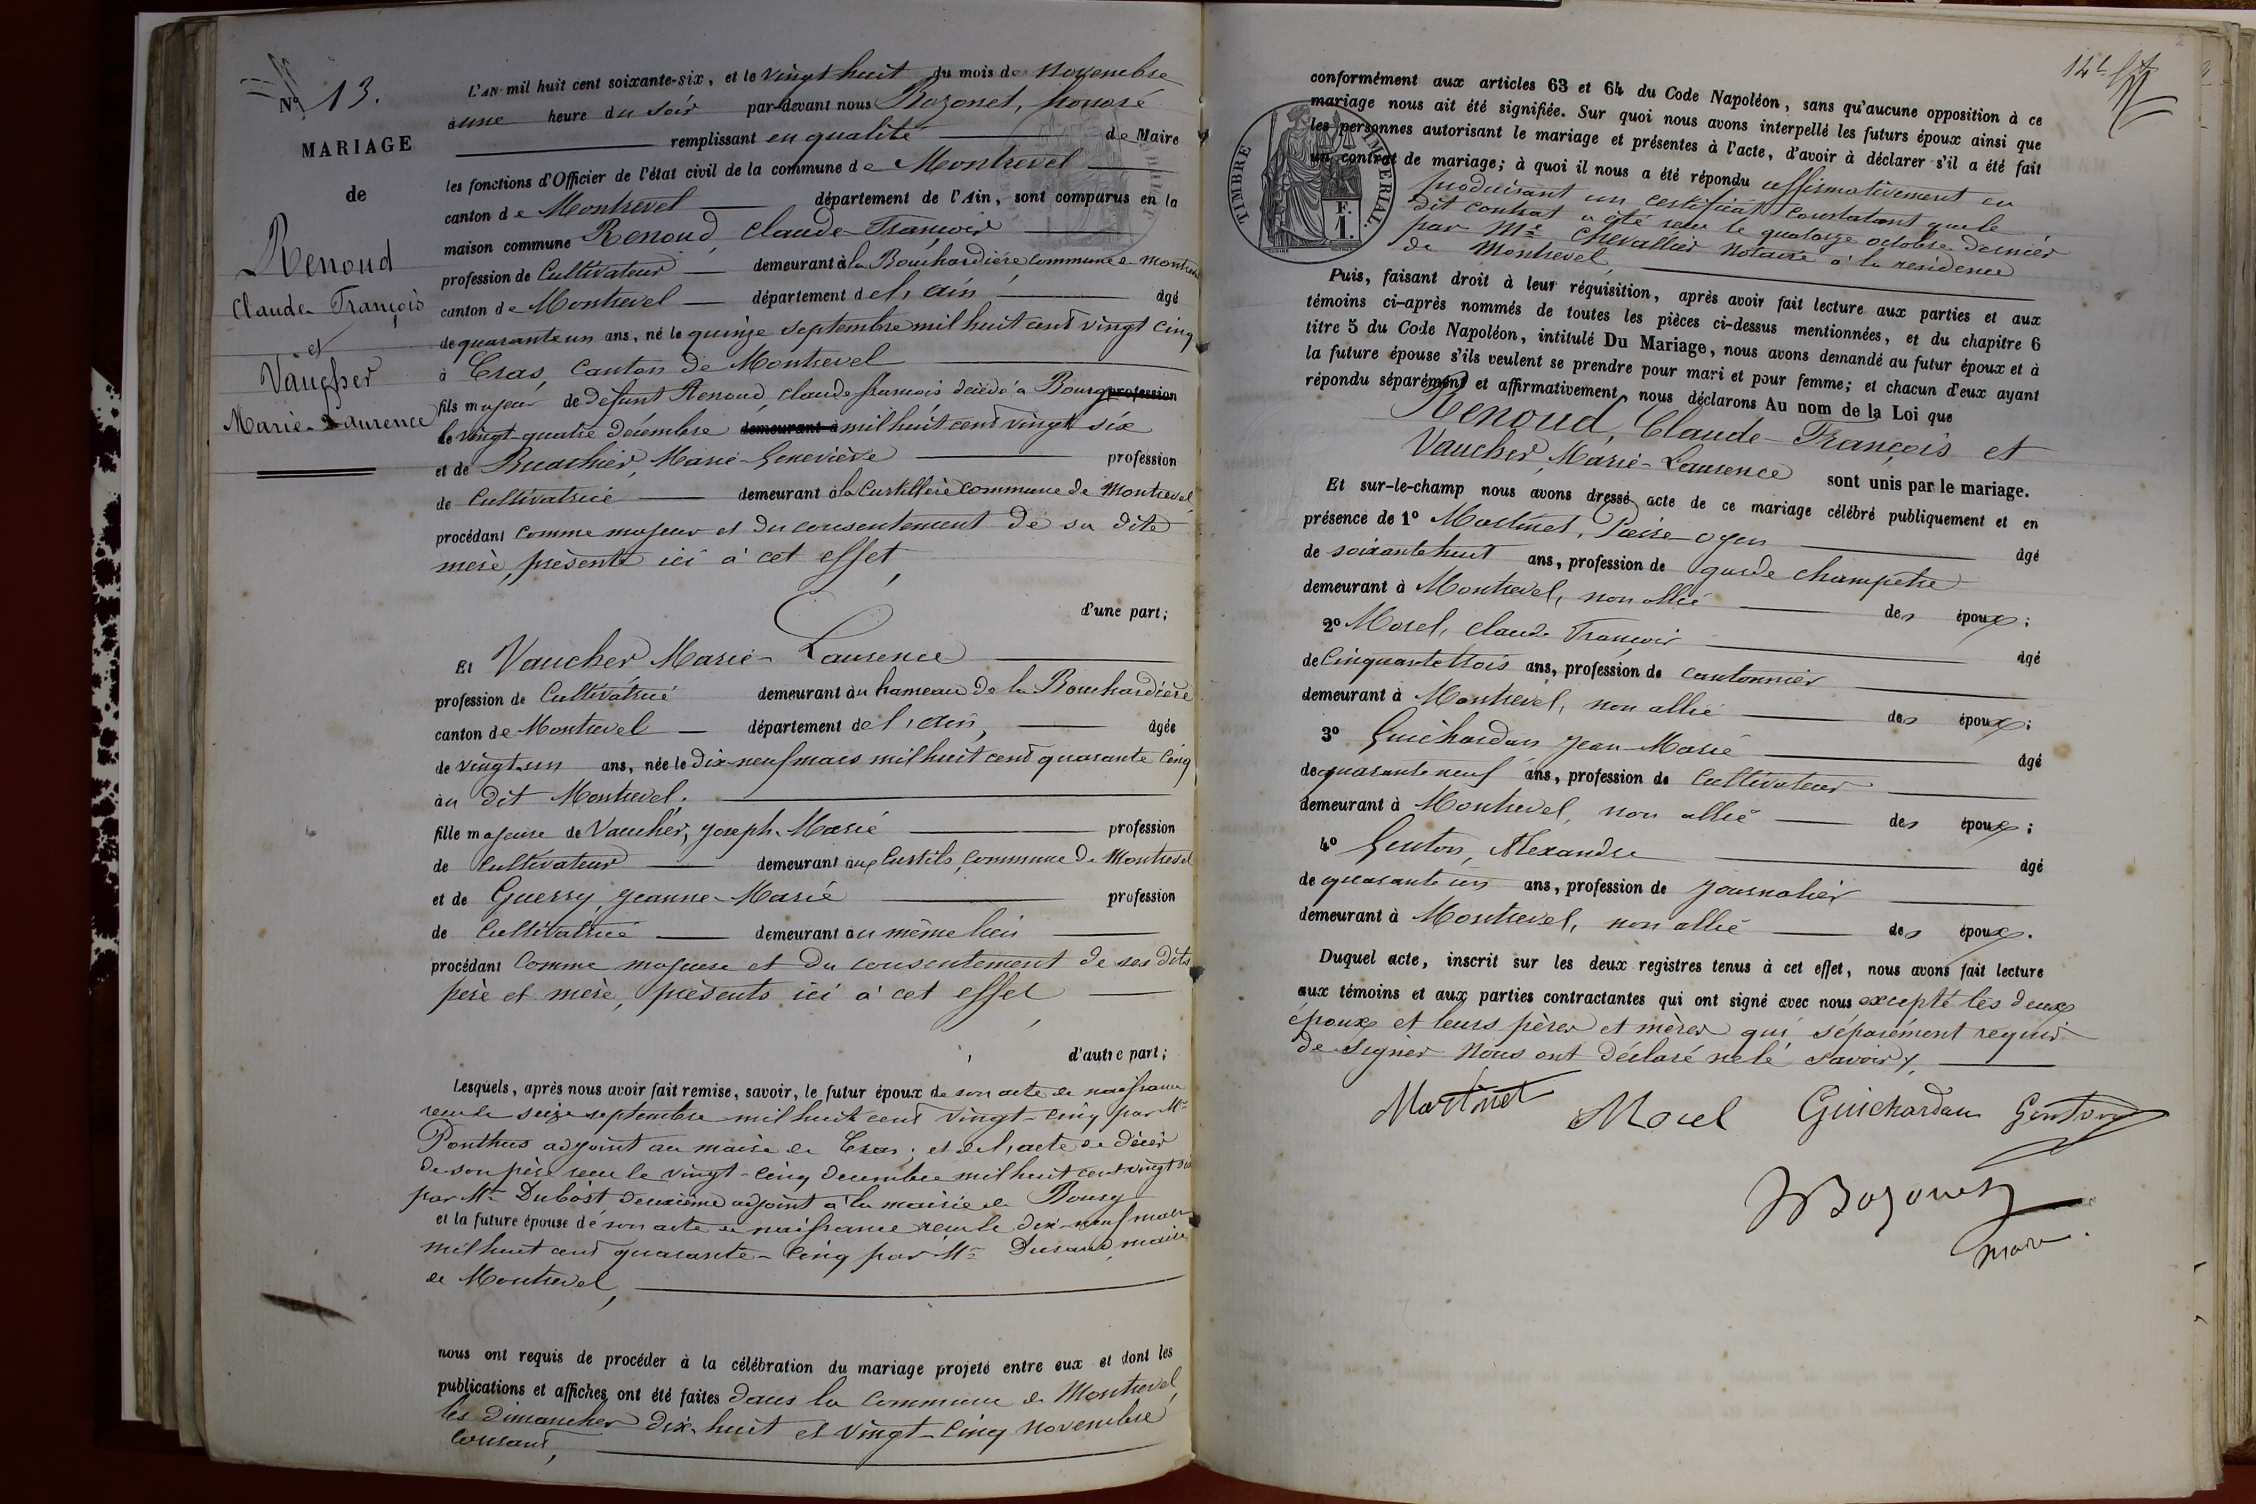 No 13.
MARIAGE
de
Renoud
Claude François
et
Vaucher
Marie-Laurence
L'AN mil huit cent soixante-six, et le vingt huit du mois de Novembre
à une heure du soir par-devant nous Bozonet, honoré
remplissant en qualité de Maire
les fonctions d'Officier de l'état civil de la commune de Montrevel
canton de Montrevel département de l'Ain, sont comparus en la
maison commune Renoud, Claude-François
profession de Cultivateur demeurant à la Bouchardière commune de Montrevel
canton de Montrevel département de l'ain âgé
de quarante un ans, né le quinze septembre mil huit cent vingt cinq
à Cras, canton de Montrevel
fils majeur de défunt Renoud, claude françois décédé à Bourg profession
le vingt-quatre décembre demeurant à mil huit cent vingt six
et de Buathier, Marie-Geneviève profession
de Cultivatrice demeurant à la commune de Montrevel
procédant comme majeur et du consentement de sa dite
mère, présente ici à cet effet,
d'une part;
Et Vaucher Marie-Laurence
profession de Cultivatrice demeurant au hameau de la Bouchardière
canton de Montrevel département de l'ain, âgée
de vingt-un ans, née le dix-neuf mars mil huit cent quarante cinq
au dit Montrevel.
fille majeure de Vaucher, Joseph-Marie profession
de Cultivateur demeurant aux Curtils, commune de Montrevel
et de Guerry, Jeanne-Marie profession
de Cultivatrice demeurant au même lieu
procédant comme majeure et du consentement de ses dits
père et mère, présents ici à cet effet
d'autre part;
Lesquels, après nous avoir fait remise, savoir, le futur époux de son acte de naissance
reçu le seize septembre mil huit cent vingt-cinq par Mr
Ponthus adjoint au maire de Cras; et de l'acte de décès
de son père reçu le vingt-cinq décembre mil huit cent vingt six
par Mr Dubost deuxième adjoint à la mairie de Bourg
et la future épouse de son acte de naissance reçu le dix-neuf mars
mil huit cent quarante-cinq par Mr Durand, maire
de Montrevel,
nous ont requis de procéder à la célébration du mariage projeté entre eux et dont les
publications et affiches ont été faites dans la commune de Montrevel,
les dimanches dix-huit et vingt-cinq novembre
courant,
conformément aux articles 63 et 64 du Code Napoléon, sans qu'aucune opposition à ce
mariage nous ait été signifiée. Sur quoi nous avons interpellé les futurs époux ainsi que
les personnes autorisant le mariage et présentes à l'acte, d'avoir à déclarer s'il a été fait
un contrat de mariage; à quoi il nous a été répondu affirmativement en
produisant un certificat constatant que le
dit contrat a été reçu le quatorze octobre dernier
par Me Chevallier Notaire à la résidence
de Montrevel
TIMBRE IMPERIAL.
F.
1.
Puis, faisant droit à leur réquisition, après avoir fait lecture aux parties et aux
témoins ci-après nommés de toutes les pièces ci-dessus mentionnées, et du chapitre 6
titre 5 du Code Napoléon, intitulé Du Mariage, nous avons demandé au futur époux et à
la future épouse s'ils veulent se prendre pour mari et pour femme; et chacun d'eux ayant
répondu séparément et affirmativement, nous déclarons Au nom de la Loi que
Renoud, Claude-François et
Vaucher, Marie-Laurence sont unis par le mariage.
Et sur-le-champ nous avons dressé acte de ce mariage célébré publiquement et en
présence de 1º Martinet, Pierre-oyen âgé
de soixante huit ans, profession de garde champêtre
demeurant à Montrevel, non allié des époux;
2º Morel, Claude François âgé
de cinquante trois ans, profession de cantonnier
demeurant à Montrevel, non allié des époux;
3º Guichardan Jean-Marie âgé
de quarante neuf ans, profession de Cultivateur
demeurant à Montrevel, non allié des époux;
4º Genton, Alexandre âgé
de quarante un ans, profession de journalier
demeurant à Montrevel, non allié des époux.
Duquel acte, inscrit sur les deux registres tenus à cet effet, nous avons fait lecture
aux témoins et aux parties contractantes qui ont signé avec nous excepté les deux
époux et leurs pères et mères qui séparément requis
de signer nous ont déclaré ne le savoir
Martinet Morel Guichardan Genton
Bozonet
maire.